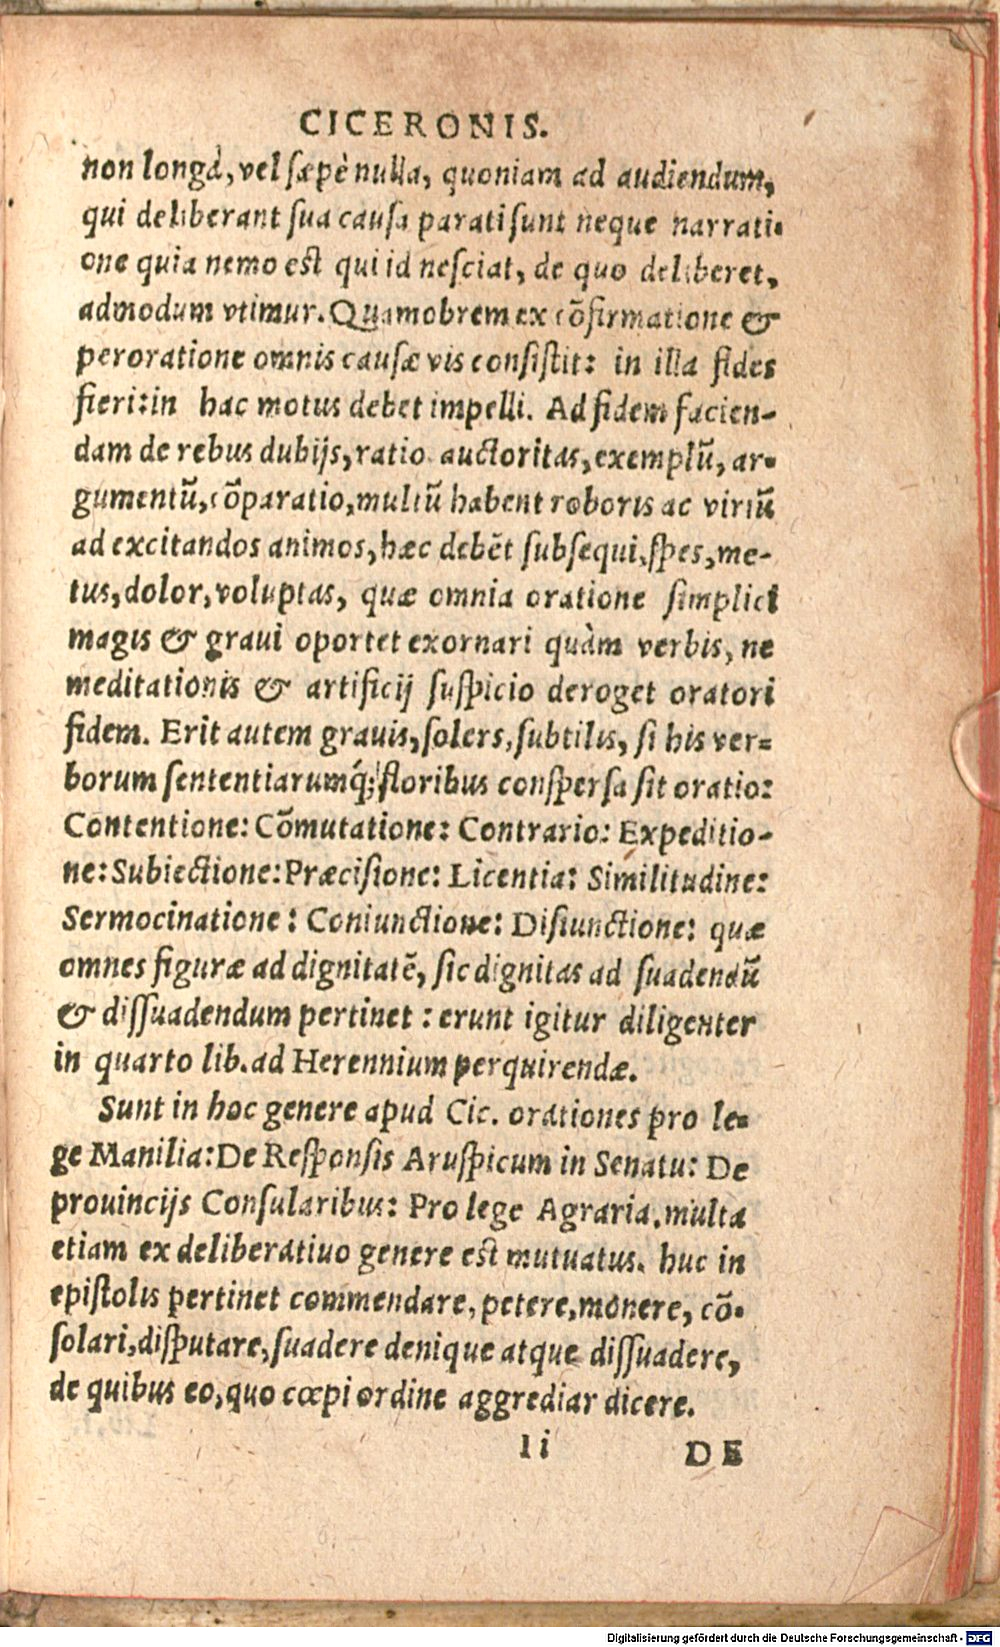 CICERONIS.
non longa, vel sæpè nulla, quoniam ad audiendum,
qui deliberant sua causa parati sunt neque narrati-
one quia nemo est qui id nesciat, de quo deliberet,
admodum vtimur. Quamobrem ex cõfirmatione &
peroratione omnis causæ vis consistit: in illa fides
fieri: in hac motus debet impelli. Ad fidem facien-
dam de rebus dubijs, ratio auctoritas, exemplũ, ar-
gumentũ, cõparatio, multũ habent roboris ac virtũ
ad excitandos animos, hæc debẽt subsequi, spes, me-
tus, dolor, voluptas, quæ omnia oratione simplici
magis & graui oportet exornari quàm verbis, ne
meditationis & artificij suspicio deroget oratori
fidem. Erit autem grauis, solers, subtilis, si his ver-
borum sententiarumq́; floribus conspersa sit oratio:
Contentione: Cõmutatione: Contrario: Expeditio-
ne: Subiectione: Præcisione: Licentia: Similitudine:
Sermocinatione: Coniunctione: Disiunctione: quæ
omnes figuræ ad dignitatẽ, sic dignitas ad suadendũ
& dissuadendum pertinet: erunt igitur diligenter
in quarto lib. ad Herennium perquirendæ.
Sunt in hoc genere apud Cic. orationes pro le-
ge Manilia: De Responsis Aruspicum in Senatu: De
prouincijs Consularibus: Pro lege Agraria. multa
etiam ex deliberatiuo genere est mutuatus. huc in
epistolis pertinet commendare, petere, monere, cõ-
solari, disputare, suadere denique atque dissuadere,
de quibus eo, quo cœpi ordine aggrediar dicere.
Ii DE
Digitalisierung gefördert durch die Deutsche Forschungsgemeinschaft - DFG